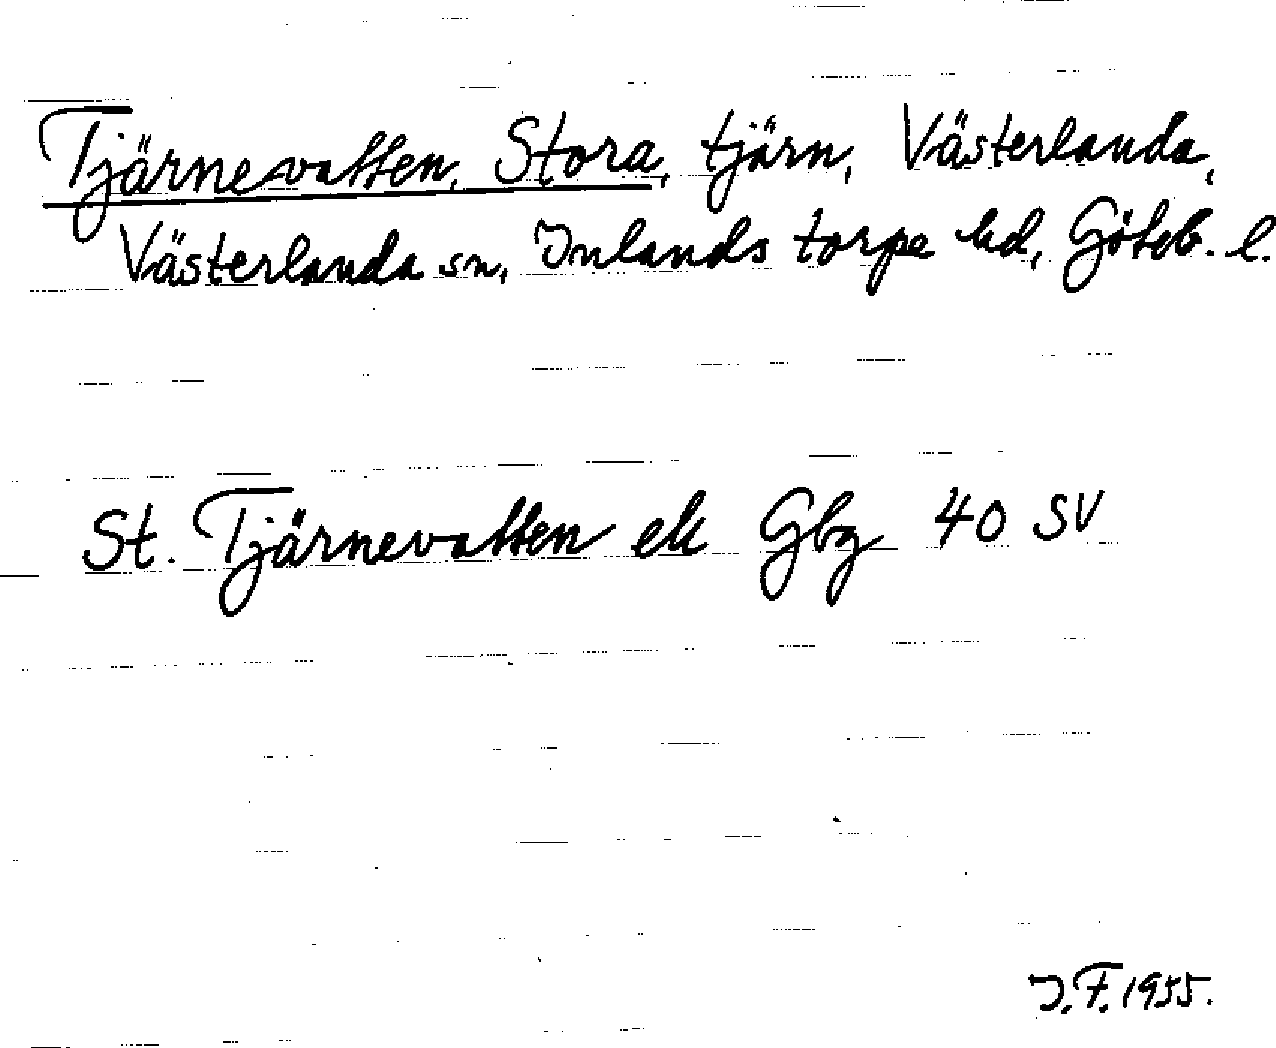 Tjärnevatten, Stora, tjärn, Västerlanda,
Västerlanda sn, Inlands torpe hd, Göteb. l.
St. Tjärnevatten ek Gbg 40 SV
J.F. 1955.